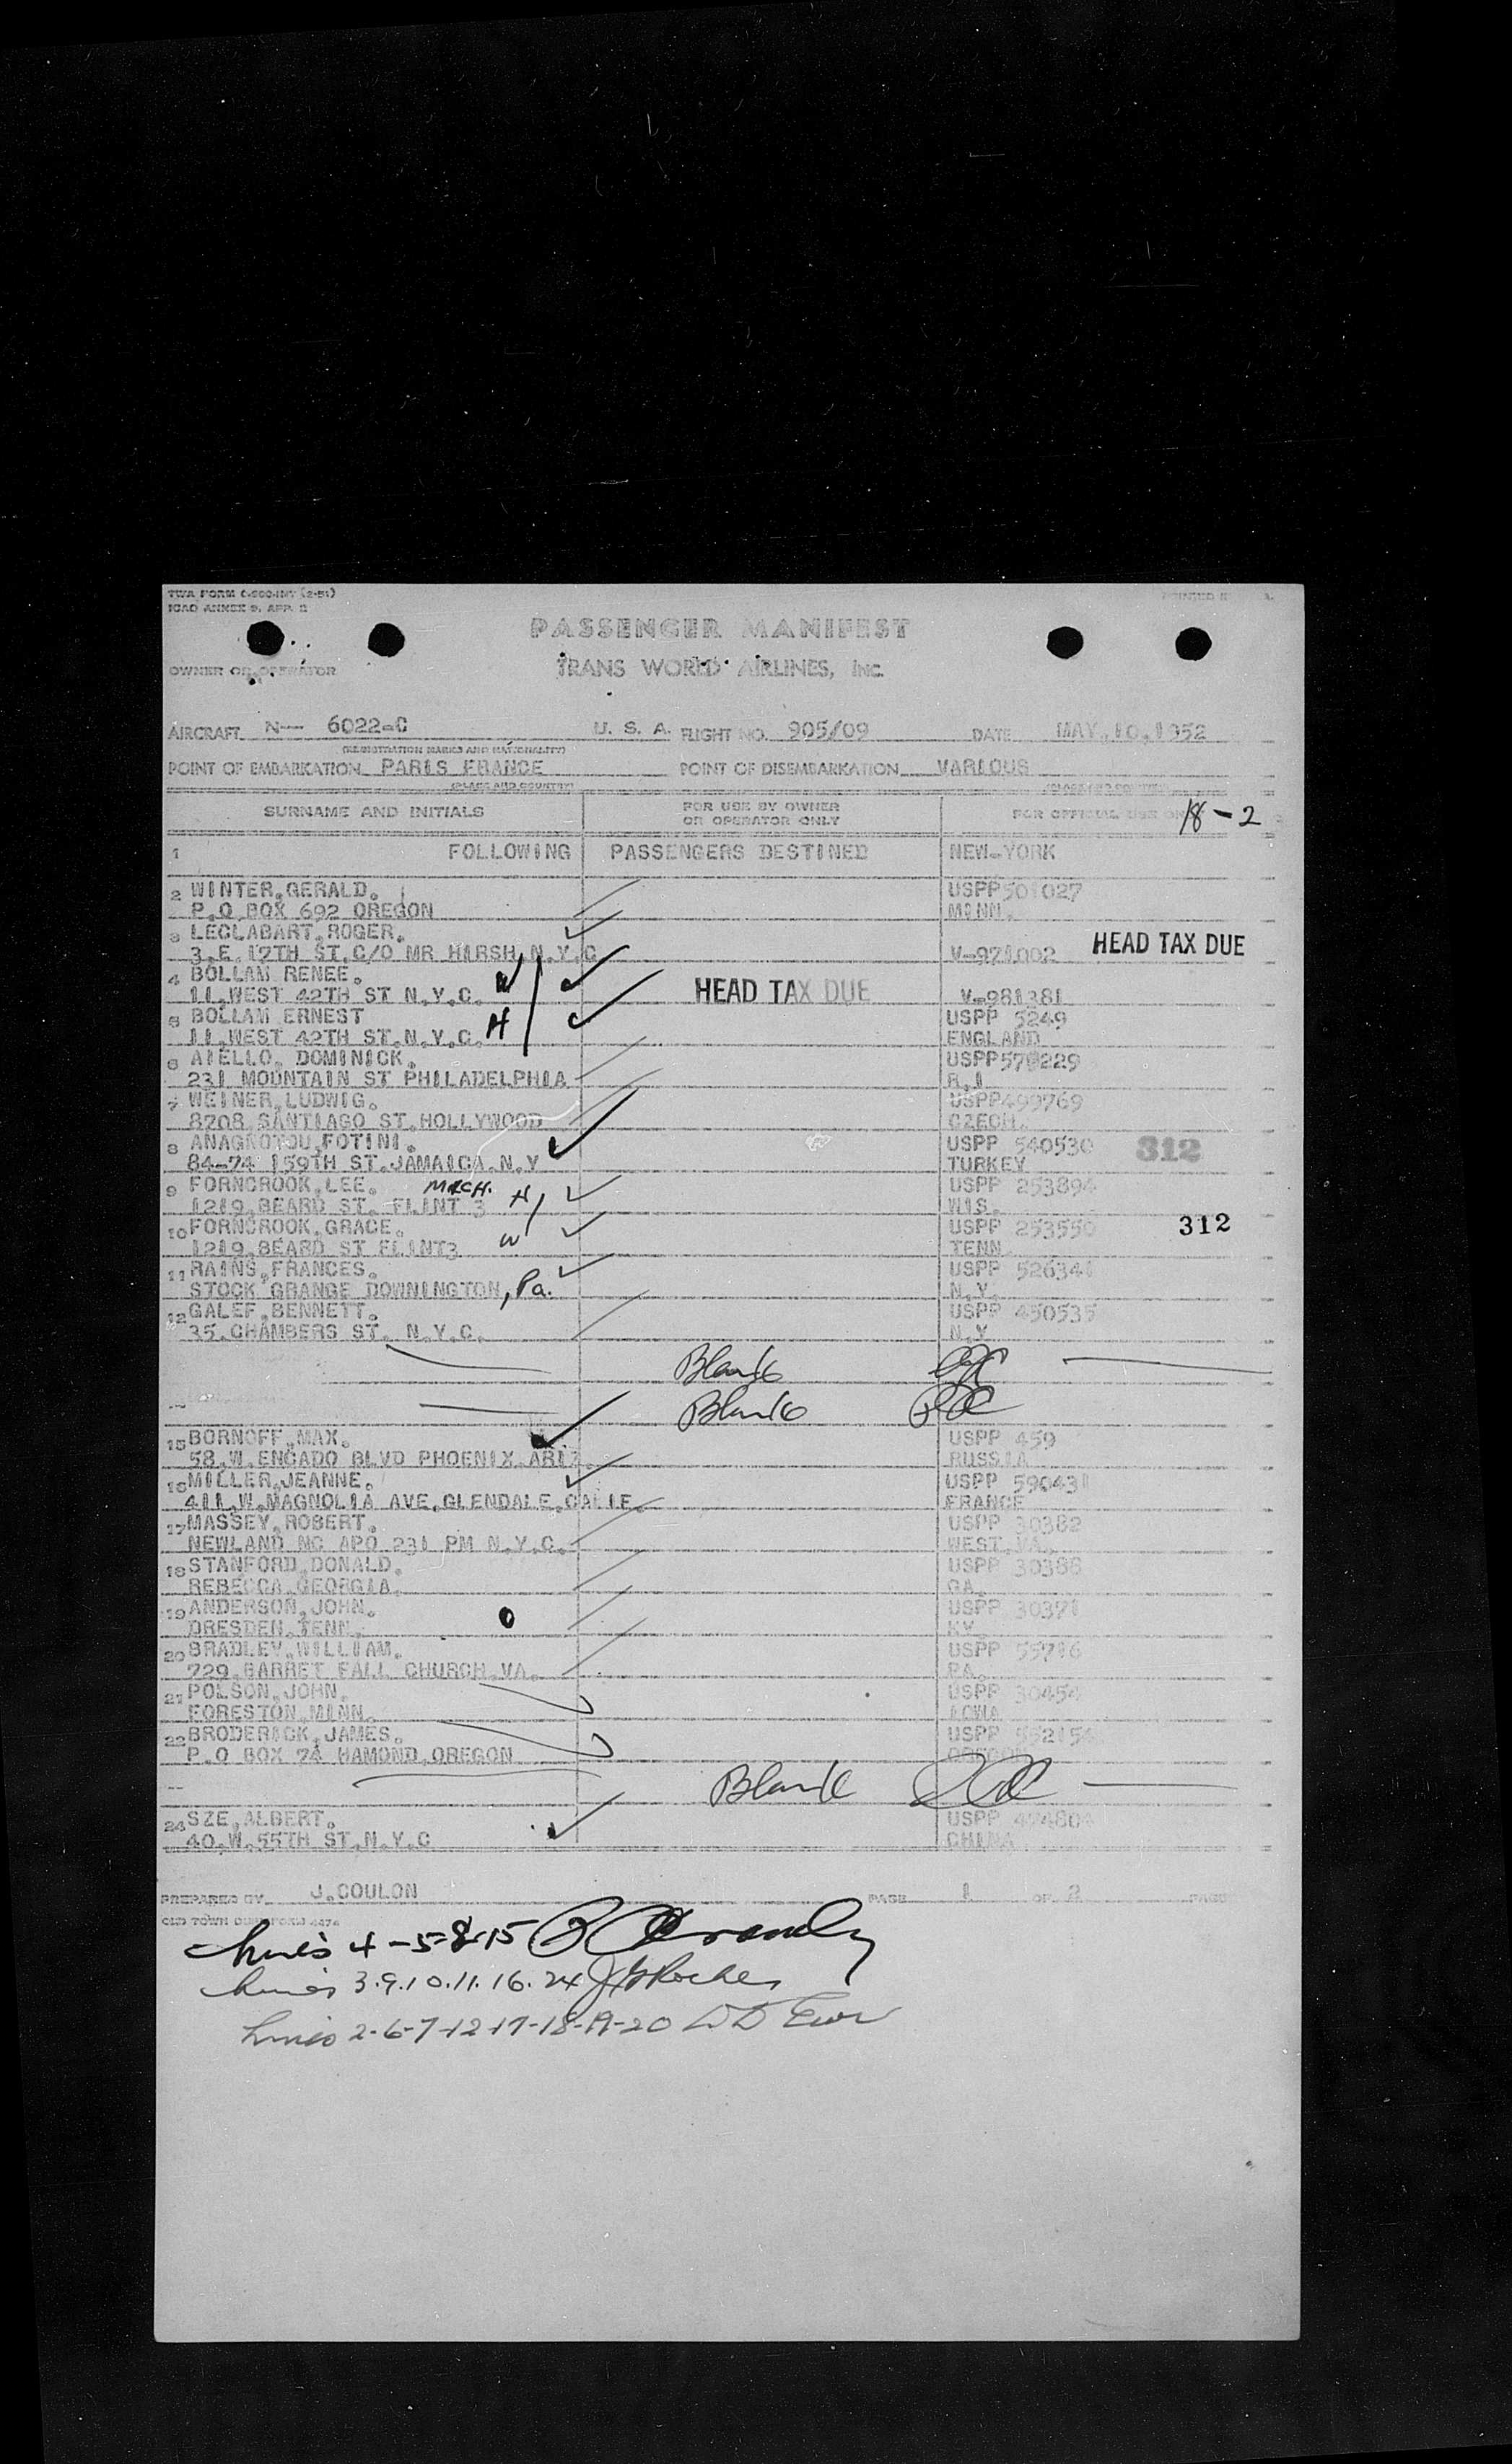 TWA FORM
ICAO ANNEX 9, APP. 2
PRINTED
PASSENGER MANIFEST
OWNER OR OPERATOR
TRANS WORLD AIRLINES, INC.
AIRCRAFT N— 6022-C U. S. A. FLIGHT NO. 905/09 DATE MAY.10.1952
(REGISTRATION MARKS AND NATIONALITY)
POINT OF EMBARKATION PARIS FRANCE POINT OF DISEMBARKATION VARIOUS
(PLACE AND COUNTRY) (PLACE AND COUNTRY)
SURNAME AND INITIALS FOR USE BY OWNER OR OPERATOR ONLY FOR OFFICIAL USE ONLY 18-2
1 FOLLOWING PASSENGERS DESTINED NEW-YORK
2 WINTER,GERALD. USPP501027
P.O BOX 692 OREGON MINN.
3 LECLABART,ROGER.
3.E.17TH ST.C/O MR HIRSH,N.Y.C V-971002 HEAD TAX DUE
4 BOLLAM RENEE. W
11,WEST 42TH ST N.Y.C. HEAD TAX DUE V-981381
5 BOLLAM ERNEST H USPP 5249
11.WEST 42TH ST.N.Y.C. ENGLAND
6 AIELLO, DOMINICK. USPP578229
231 MOUNTAIN ST PHILADELPHIA R.I
7 WEINER,LUDWIG. USPP499769
8208 SANTIAGO ST.HOLLYWOOD CZECH.
8 ANAGNOTOU,FOTINI. USPP 540530 312
84-74 159TH ST.JAMAICA.N.Y TURKEY
9 FORNCROOK,LEE. MECH. H USPP 253894
1219.BEARD ST. FLINT 3 WIS.
10 FORNCROOK,GRACE. W USPP 253550 312
1219.BEARD ST FLINT3 TENN
11 RAINS,FRANCES. USPP 526341
STOCK GRANGE DOWNINGTON, Pa. N.Y.
12 GALEF,BENNETT. USPP 450535
35.CHAMBERS ST. N.Y.C. N.Y
Blank
Blank
15 BORNOFF,MAX. USPP 459
58.W.ENCADO BLVD PHOENIX ARIZ. RUSSIA
16 MILLER,JEANNE. USPP 590431
411.W.MAGNOLIA AVE.GLENDALE.CALIF. FRANCE
17 MASSEY,ROBERT. USPP 30382
NEWLAND NC APO 231 PM N.Y.C. WEST.VA.
18 STANFORD,DONALD. USPP 30388
REBECCA,GEORGIA. GA.
19 ANDERSON,JOHN. O USPP 30371
DRESDEN,TENN. KY.
20 BRADLEY,WILLIAM. USPP 55716
729.BARRET FALL CHURCH.VA. PA.
21 POLSON,JOHN. USPP 30454
FORESTON,MINN. IOWA
22 BRODERICK,JAMES. USPP 552154
P.O BOX 74 HAMOND,OREGON OREGON
Blank
24 SZE,ALBERT. USPP 474804
40.W.55TH ST.N.Y.C CHINA
PREPARED BY J.COULON PAGE 1 OF 2 PAGE
OLD TOWN
Lines 4-5-8-15
Lines 3.9.10.11.16.24
Lines 2-6-7-12-17-18-19-20